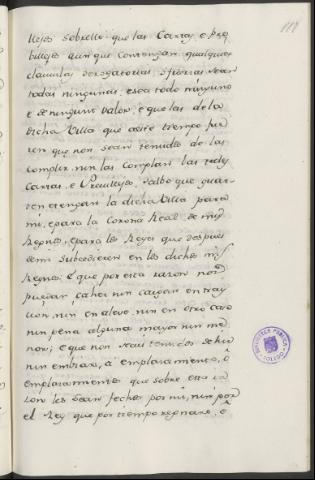 117
llejos sobrello: que las Cartas, e Pre
billejos aunque Contengan qualquier
clausulas derogatorias, e fuerias sean
todas ningunas, e sea todo ninguno
e de ningunt valor; e que las de la
dicha Villa que a este tiempo fue
ren que non sean tenudos de las
complir, nin las complan las tales
Cartas, e Previllejos, salbo que guar
den e tengan la dicha Villa para
mi, epara la Corona Real de mis
Regnos, epara los Reyes que despues
de mi subcedieren en los dichos mis
Regnos: E que por esta razon non
puedan caher nin caigan en tray
cion, nin en aleve, nin en otro caso
nin pena alguna mayor nin me
nor; e que non sean tenidos de hir
nin embiar, a emplazamiento, o
emplazamientos que sobre esta ra
zon les sean fechos por mi, nin por
el Rey que por tiempo regnare, e
BIBLIOTECA PUBLICA
TOLEDO